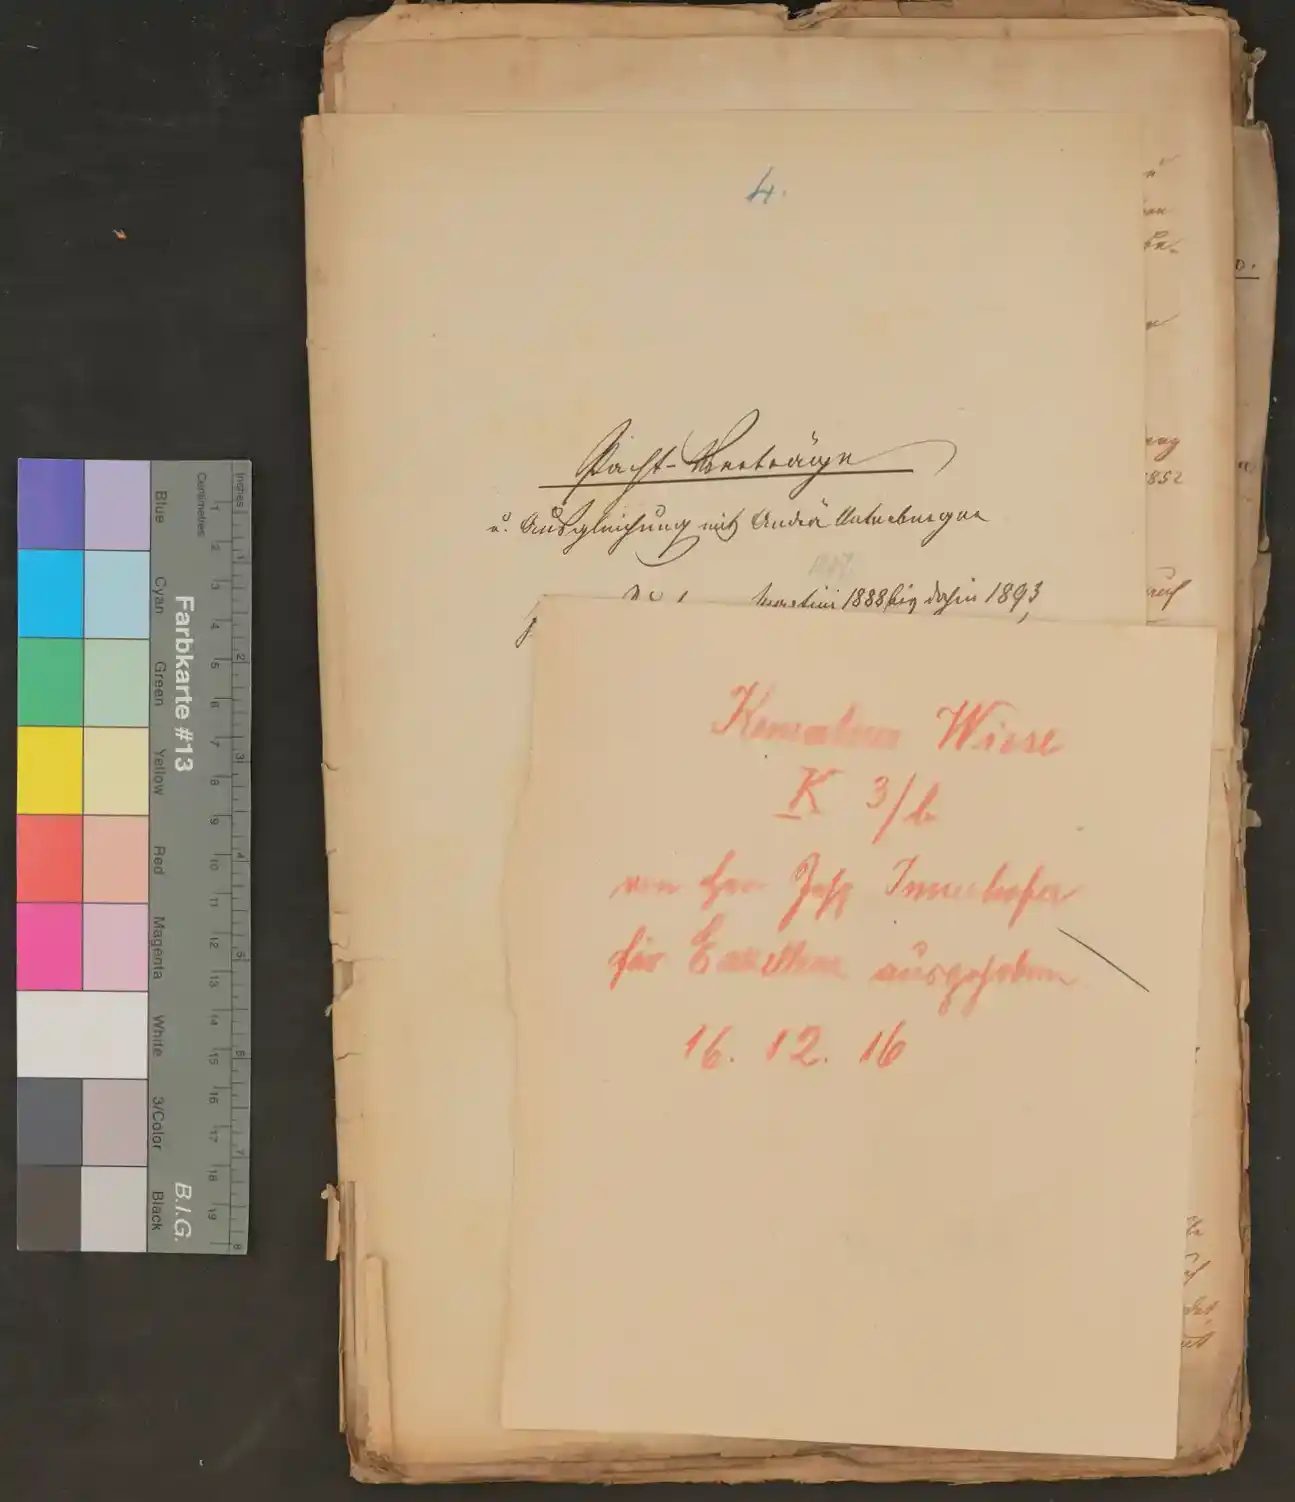 4.
Pacht-Verträge
u. Ausgleichung mit Andrä Unterberger
Martini 1888 bis dahin 1893
Wiese
K 3/b
von Herr Josef Innerhofer
für Exzellenz ausgehoben
16. 12. 16
1852
auf
Farbkarte #13
B.I.G.
Blue
Cyan
Green
Yellow
Red
Magenta
White
3/Color
Black
Centimetres
Inches
1 2 3 4 5 6 7 8 9 10 11 12 13 14 15 16 17 18 19
1 2 3 4 5 6 7 8